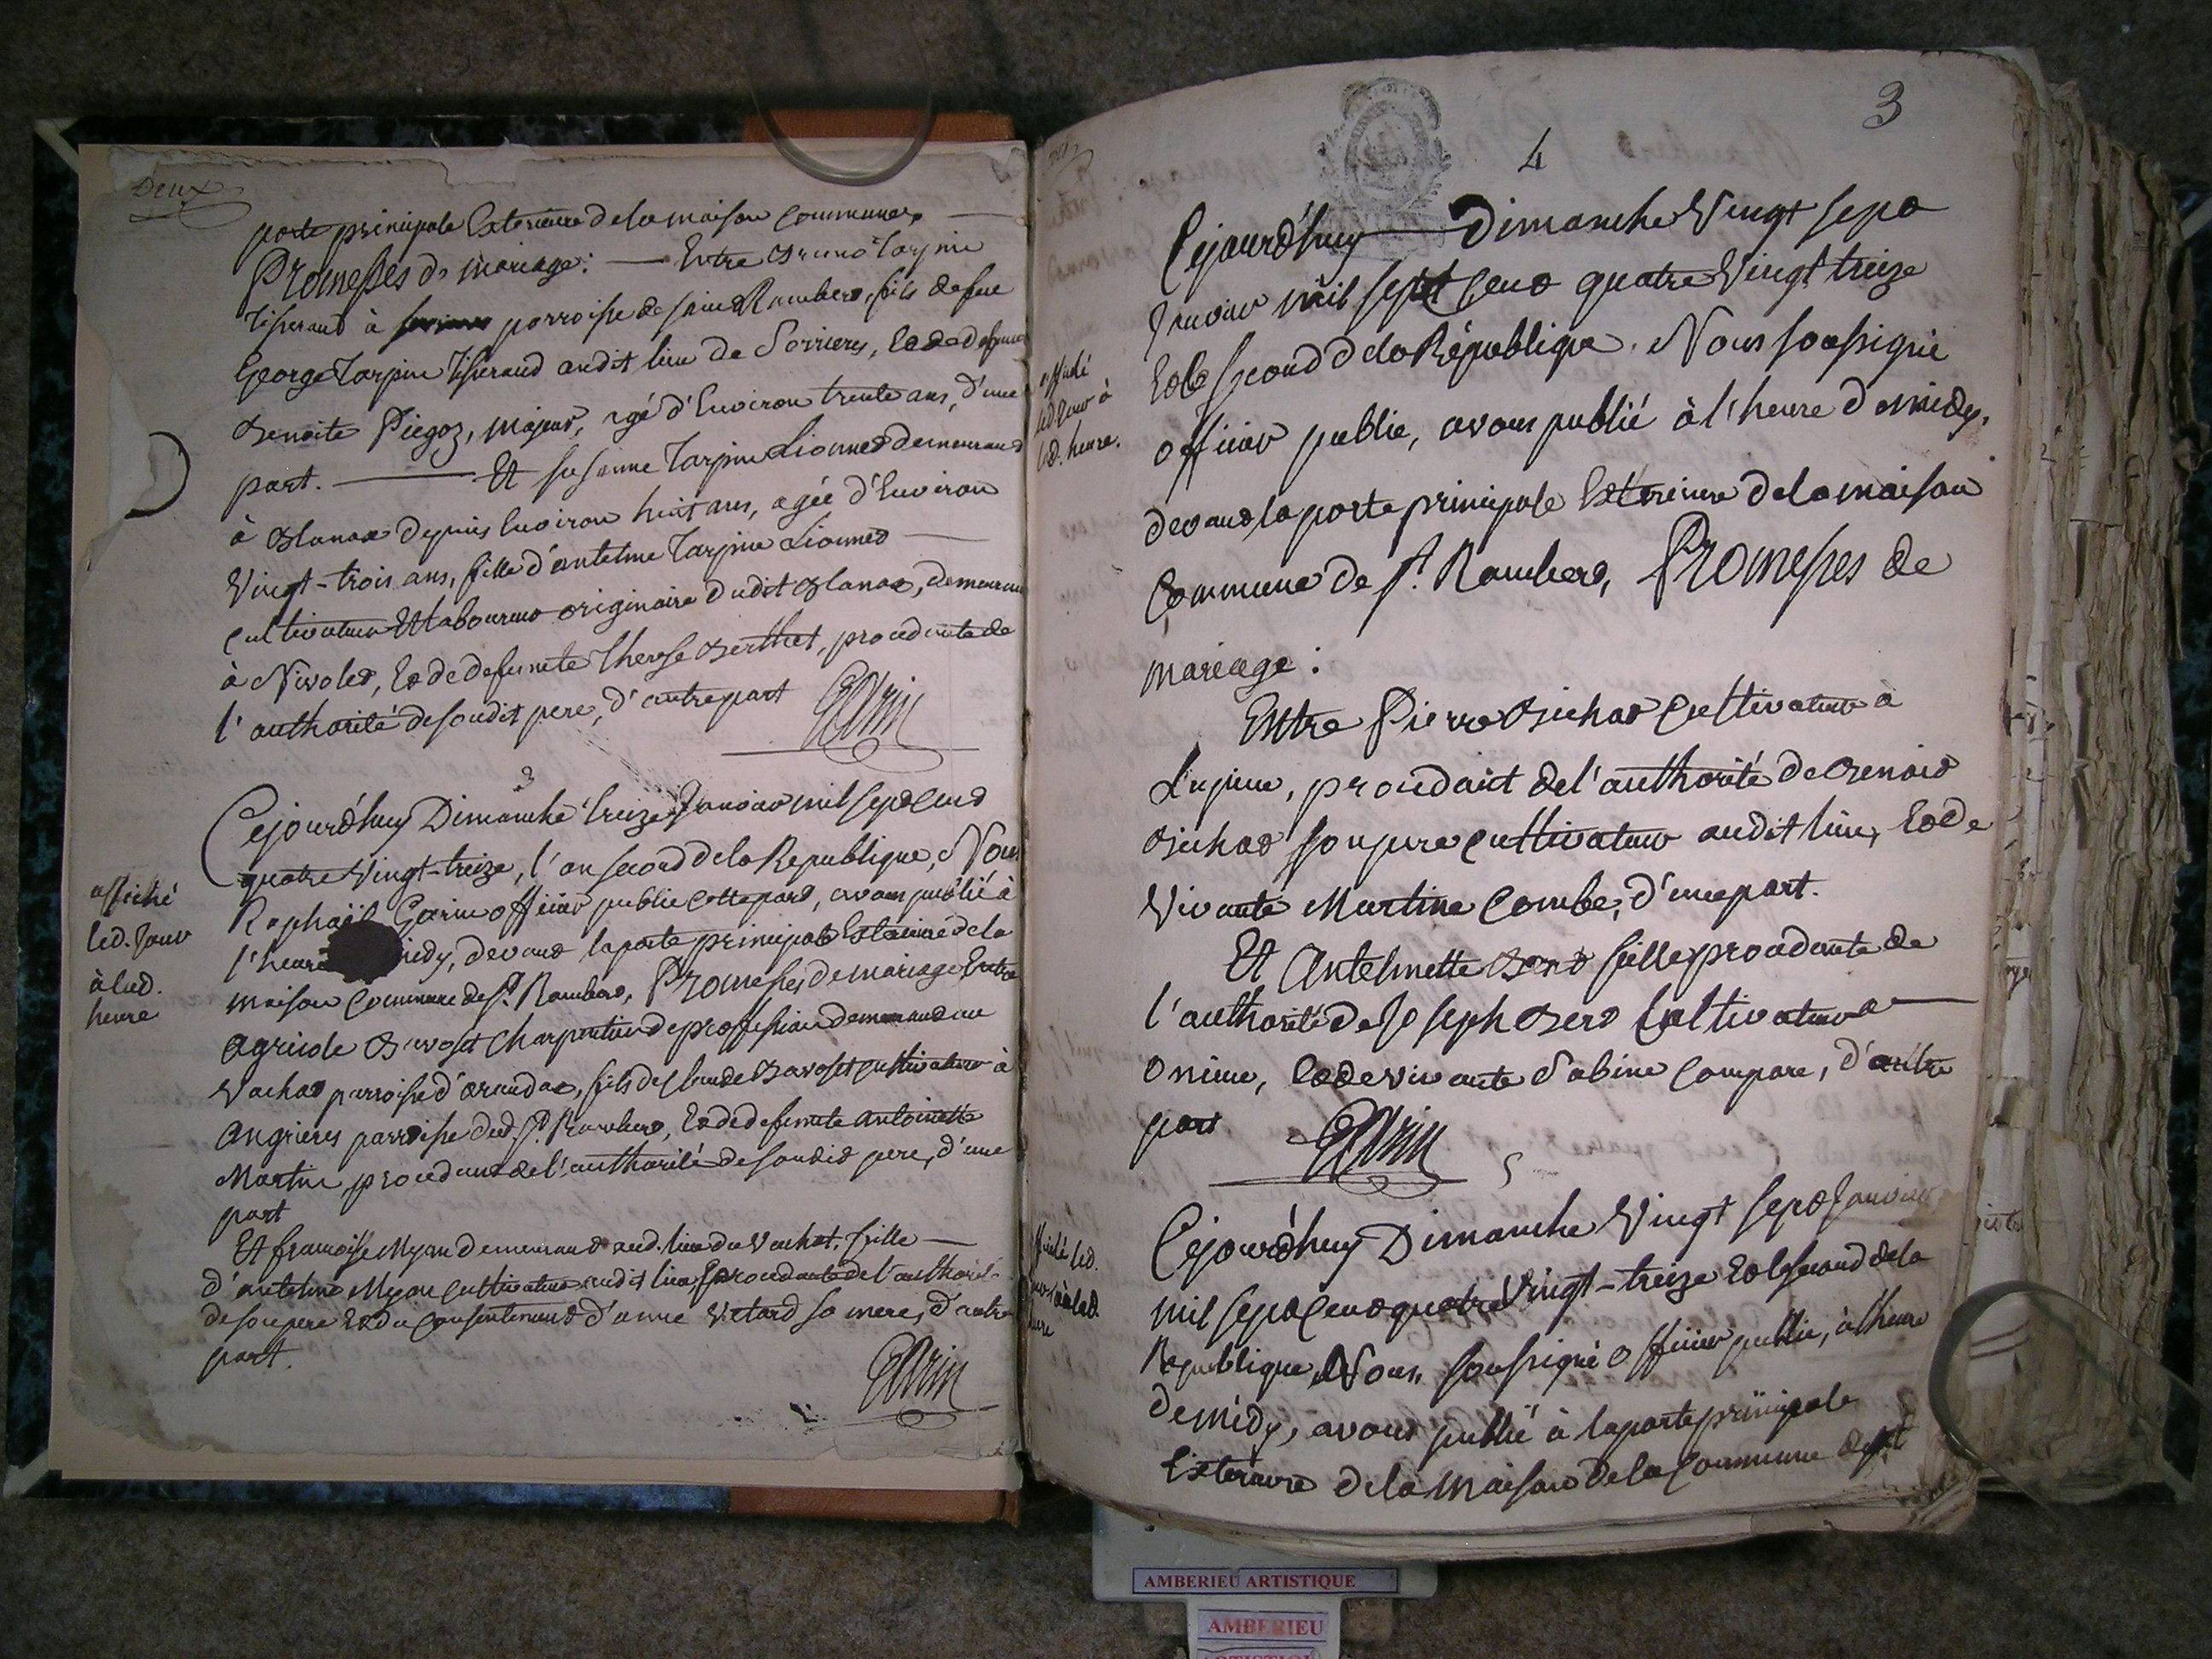 Deux
porte principale Exterieure de la maison commune,
Promesses de mariage : Entre Bruno Tarpin
Tisserand à parroisse de saint Rambert, fils de feu
George Tarpin Tisserand audit lieu de Serrieres, Et de defunte
Benoite Piegoz, majeur, agé d'Environ trente ans, d'une
part. Et Susanne Tarpin Lionnet demeurant
à Blanaz depuis Environ huit ans, agée d'Environ
Vingt-trois ans, fille d'antelme Tarpin Lionnet
cultivateur Et laboureur originaire dudit Blanaz, demeurant
à Nivolet, Et de defuncte Therese Berthet, procedante de
l'authorité de soudit pere, d'autre part
Garin
3
Cejourd'huy Dimanche treize Janvier mil sept cent
quatre Vingt-treize, l'an second de la Republique, Nous
Raphaël Garin officier public cette part, avons publié à
l'heure midy, devant la porte principale Exterieure de la
maison commune de St. Rambert, Promesses de mariage Entre
Agricole Bavoset Charpentier de proffession demeurant au
Vachat parroisse d'arandas, fils de Claude Bavoset cultivateur à
Angrieres parroisse dud. St. Rambert, Et de defuncte Antoinette
Martin, procedant de l'authorité de soudit pere, d'une
part
Et francoise Myan demeurant aud. lieu du Vachat, fille
d'antelme Myan cultivateur audit lieu, procedante de l'authorité
de son pere Et du Consentement d'anne Vetard sa mere, d'autre
part.
Garin
affiché
led. Jour
à lad.
heure
3
4
Cejourd'huy Dimanche Vingt sept
Janvier mil sept Cent quatre Vingt treize
Et le second de la République. Nous soussigné
officier public, avons publié à l'heure de midy,
devant la porte principale Exterieure de la maison
Commune de St. Rambert, Promesses de
mariage :
Entre Pierre Bichat Cultivateur a
Lupieu, procedant de l'authorité de Benoit
Bichat son pere cultivateur audit lieu, Et de
Vivante Martine Combe, d'une part.
Et Antelmette Bert fille procedante de
l'authorité de Joseph Bert Cultivateur a
Onieux, Et de vivante Sabine Compare, d'autre
part
Garin
affiché
led. Jour à
lad. heure.
5
Cejourd'huy Dimanche Vingt sept Janvier
mil sept Cent quatre Vingt-treize Et le second de la
Republique, Nous soussigné officier public, à l'heure
de midy, avons publié à la porte principale
Exterieure de la maison de la Commune de St.
affiché led.
jour à lad.
heure
AMBERIEU ARTISTIQUE
AMBERIEU
ARTISTIQUE